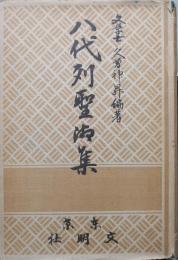 文学士 久曾神昇編著
八代列聖御集
東京
文明社